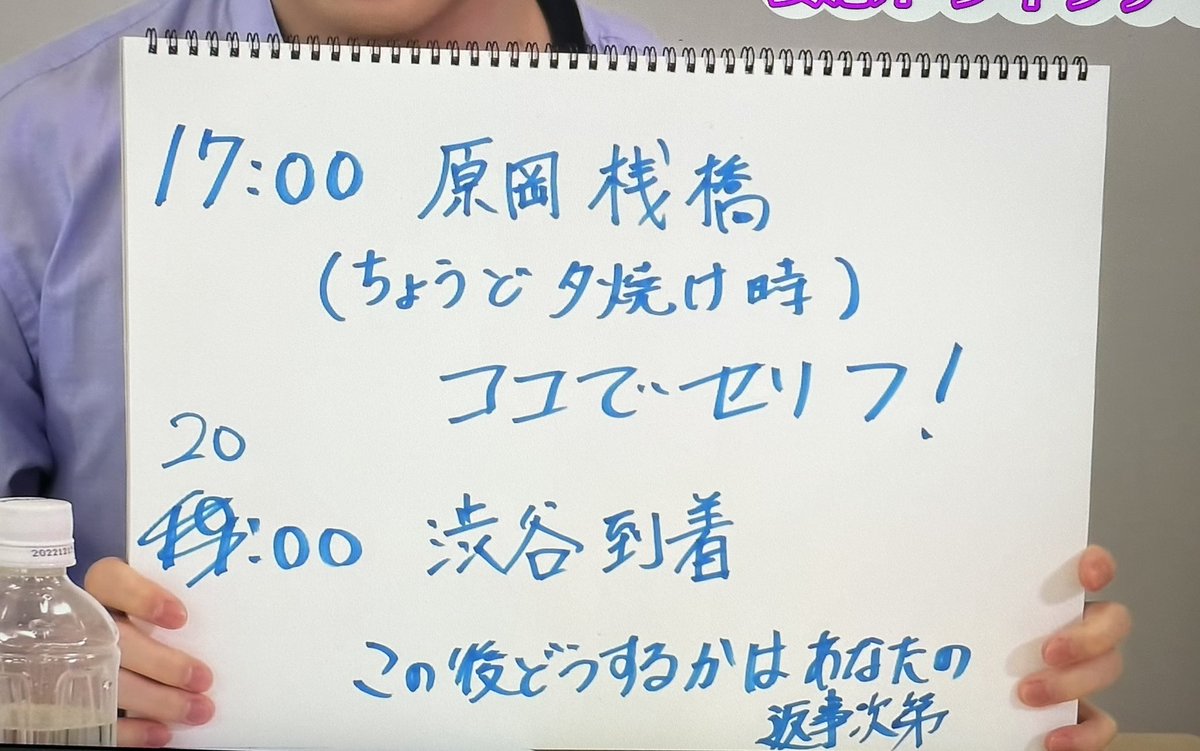 17:00 原岡桟橋
(ちょうど夕焼け時)
ココでセリフ!
20
19:00 渋谷到着
この後どうするかはあなたの
返事次第